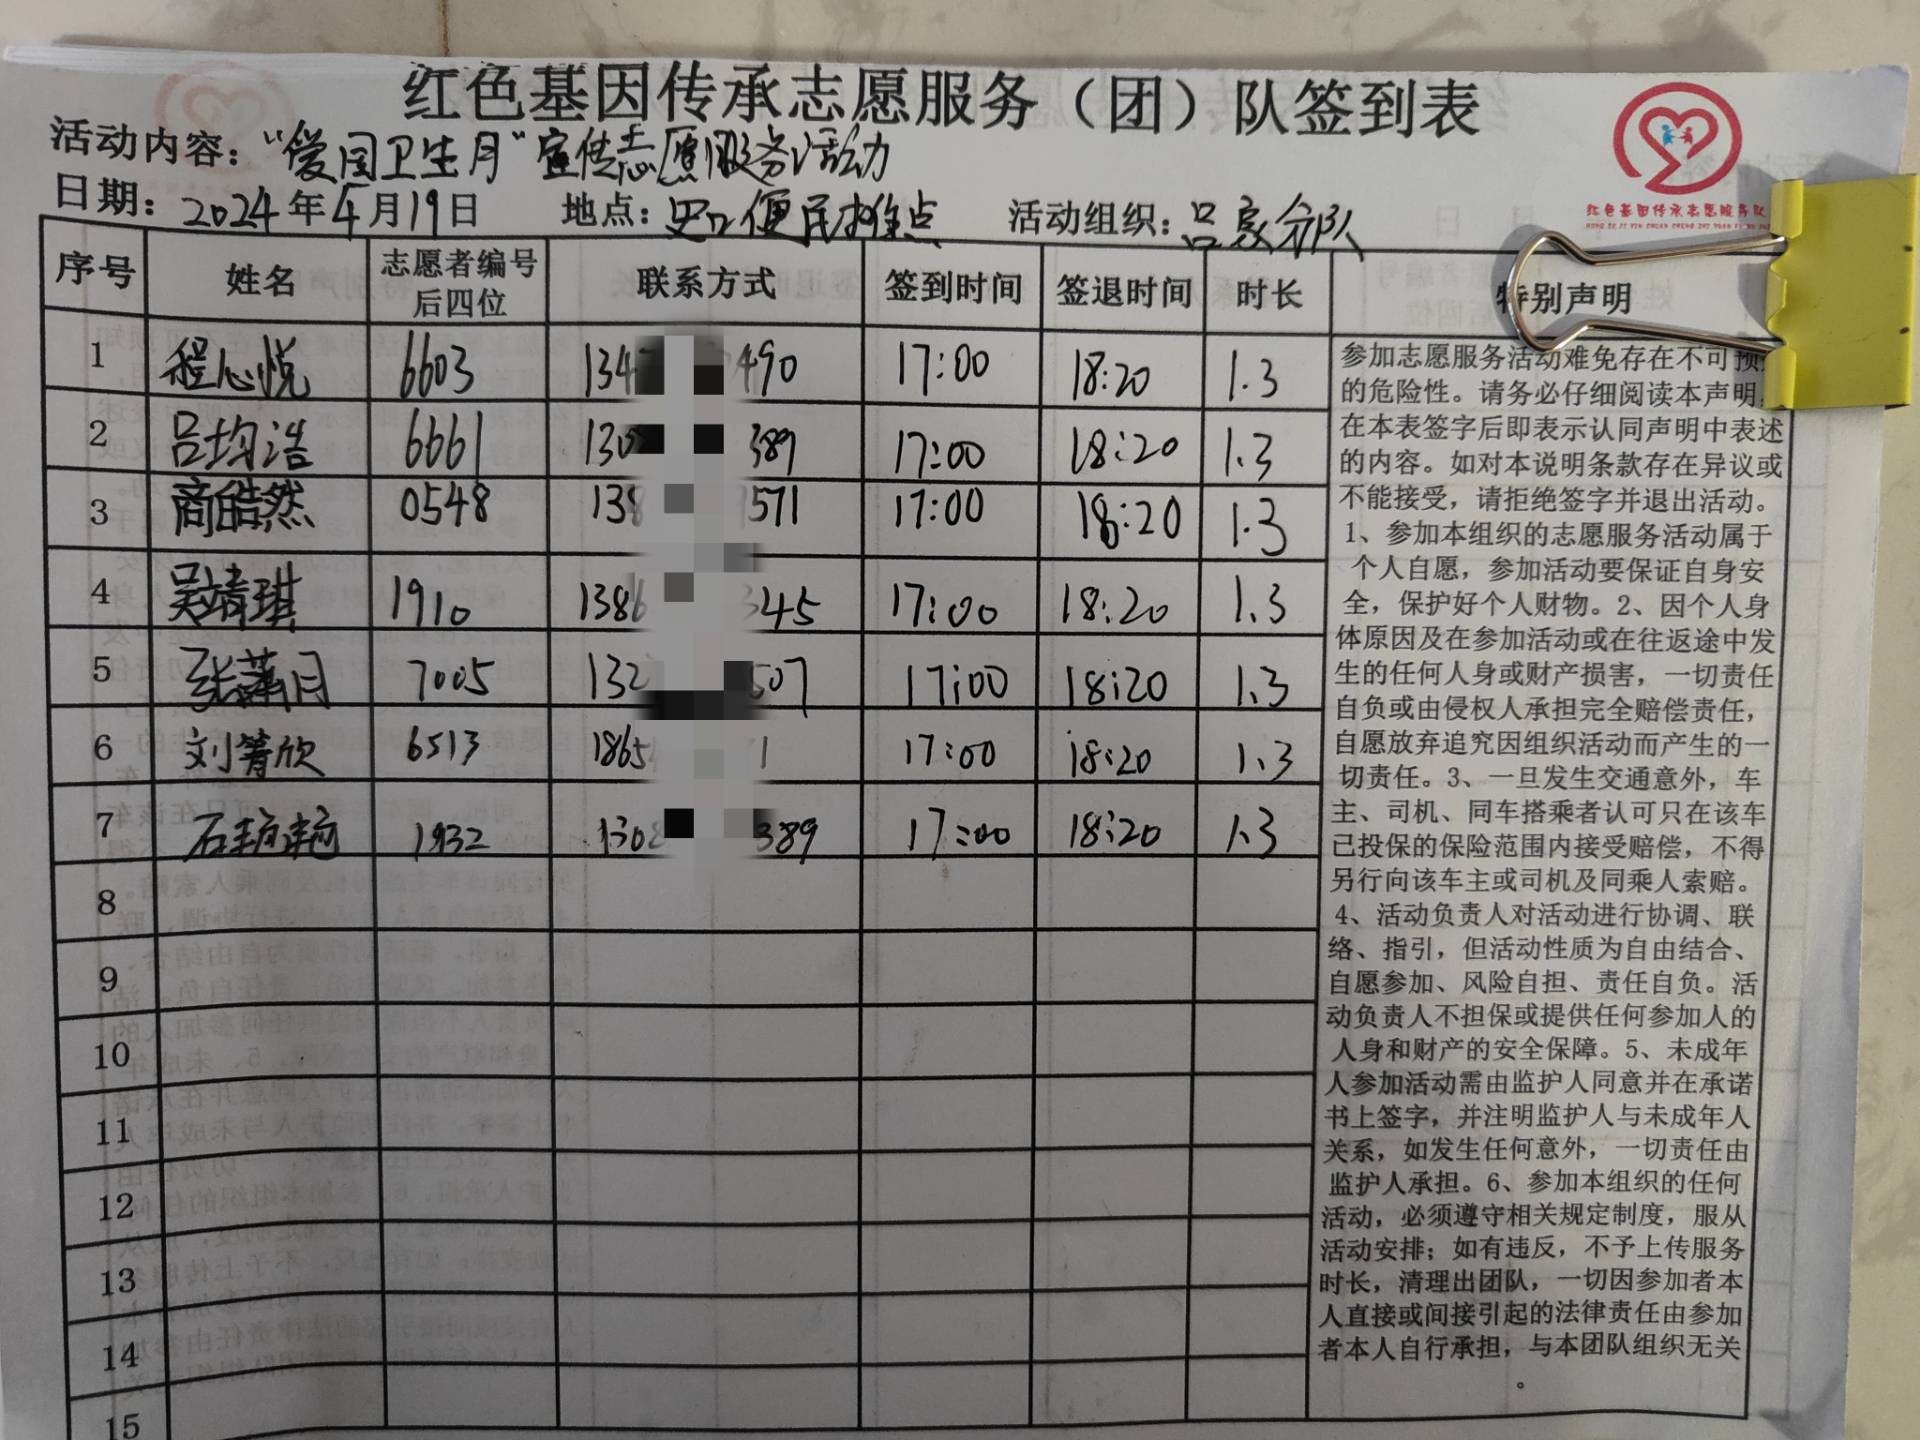 红色基因传承志愿服务（团）队签到表
活动内容："爱国卫生月"宣传志愿服务活动
日期：2024年4月19日 地点：史口便民摊点 活动组织：吕家分队
红色基因传承志愿服务队
序号 姓名 志愿者编号后四位 联系方式 签到时间 签退时间 时长 特别声明
1 程心悦 6603 134 490 17:00 18:20 1.3
2 吕均浩 6661 130 389 17:00 18:20 1.3
3 商皓然 0548 138 571 17:00 18:20 1.3
4 吴靖琪 1910 1386 345 17:00 18:20 1.3
5 张潇月 7005 132 507 17:00 18:20 1.3
6 刘箐欣 6513 1865 1 17:00 18:20 1.3
7 石 1932 1308 389 17:00 18:20 1.3
8
9
10
11
12
13
14
15
参加志愿服务活动难免存在不可预
的危险性。请务必仔细阅读本声明，
在本表签字后即表示认同声明中表述
的内容。如对本说明条款存在异议或
不能接受，请拒绝签字并退出活动。
1、参加本组织的志愿服务活动属于
个人自愿，参加活动要保证自身安
全，保护好个人财物。2、因个人身
体原因及在参加活动或在往返途中发
生的任何人身或财产损害，一切责任
自负或由侵权人承担完全赔偿责任，
自愿放弃追究因组织活动而产生的一
切责任。3、一旦发生交通意外，车
主、司机、同车搭乘者认可只在该车
已投保的保险范围内接受赔偿，不得
另行向该车主或司机及同乘人索赔。
4、活动负责人对活动进行协调、联
络、指引，但活动性质为自由结合、
自愿参加、风险自担、责任自负。活
动负责人不担保或提供任何参加人的
人身和财产的安全保障。5、未成年
人参加活动需由监护人同意并在承诺
书上签字，并注明监护人与未成年人
关系，如发生任何意外，一切责任由
监护人承担。6、参加本组织的任何
活动，必须遵守相关规定制度，服从
活动安排；如有违反，不予上传服务
时长，清理出团队，一切因参加者本
人直接或间接引起的法律责任由参加
者本人自行承担，与本团队组织无关
。